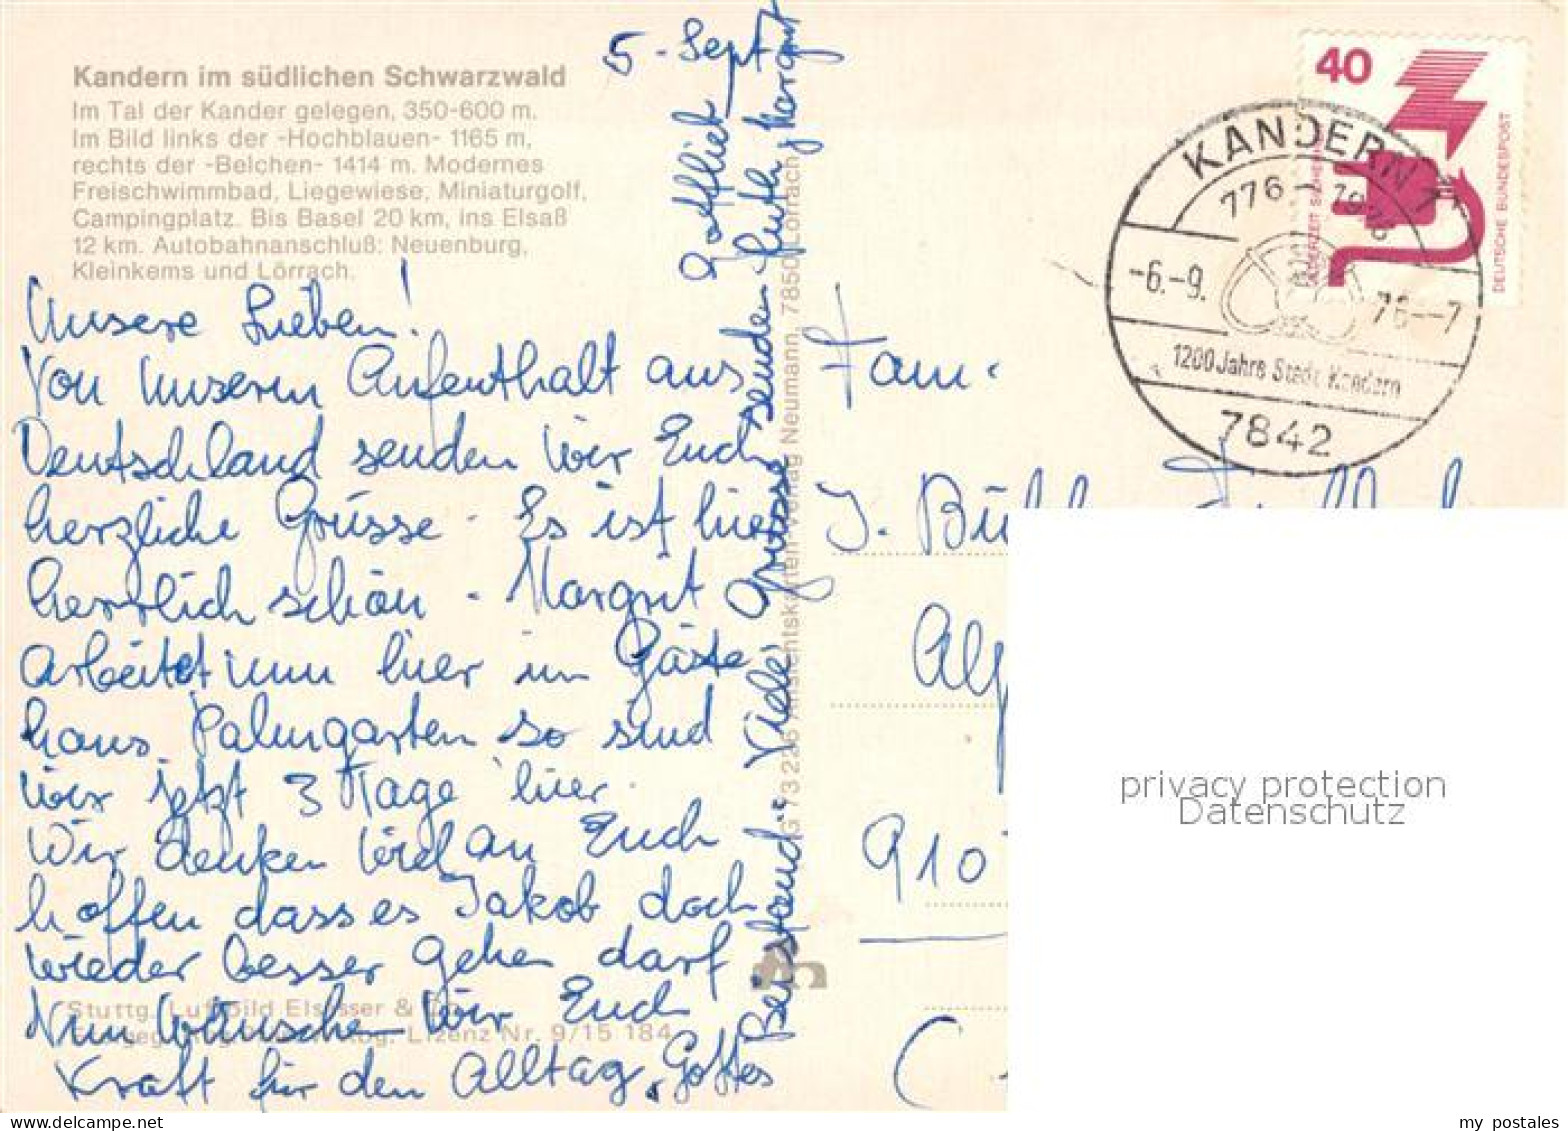 Kandern im südlichen Schwarzwald
Im Tal der Kander gelegen, 350-600 m.
Im Bild links der -Hochblauen- 1165 m,
rechts der -Belchen- 1414 m. Modernes
Freischwimmbad, Liegewiese, Miniaturgolf,
Campingplatz. Bis Basel 20 km, ins Elsaß
12 km. Autobahnanschluß: Neuenburg,
Kleinkems und Lörrach.
5. Sept
Unsere Lieben!
Von unserm Aufenthalt aus
Deutschland senden wir Euch
herzliche Grüsse. Es ist hier
herrlich schön. Margrit
arbeitet nun hier im Gäste
haus Palmgarten so sind
wir jetzt 3 Tage hier.
Wir denken viel an Euch
hoffen dass es Jakob doch
wieder besser gehen darf
Nun wünschen wir Euch
Kraft für den Alltag, Gottes
Beistand. Viele Grüsse senden Ruth, Margrit
Gottlieb
Stuttg. Luftbild Elsässer & Co
Lizenz Nr. 9/15 184
G 73 226 Ansichtskarten-Verlag Neumann, 7850 Lörrach
40
JEDERZEIT SICHERHEIT
DEUTSCHE BUNDESPOST
KANDERN 1
776 - 1976
-6.-9. 76--7
1200 Jahre Stadt Kandern
7842
Fam.
J. Bühl
Alp
910
privacy protection
Datenschutz
my postales